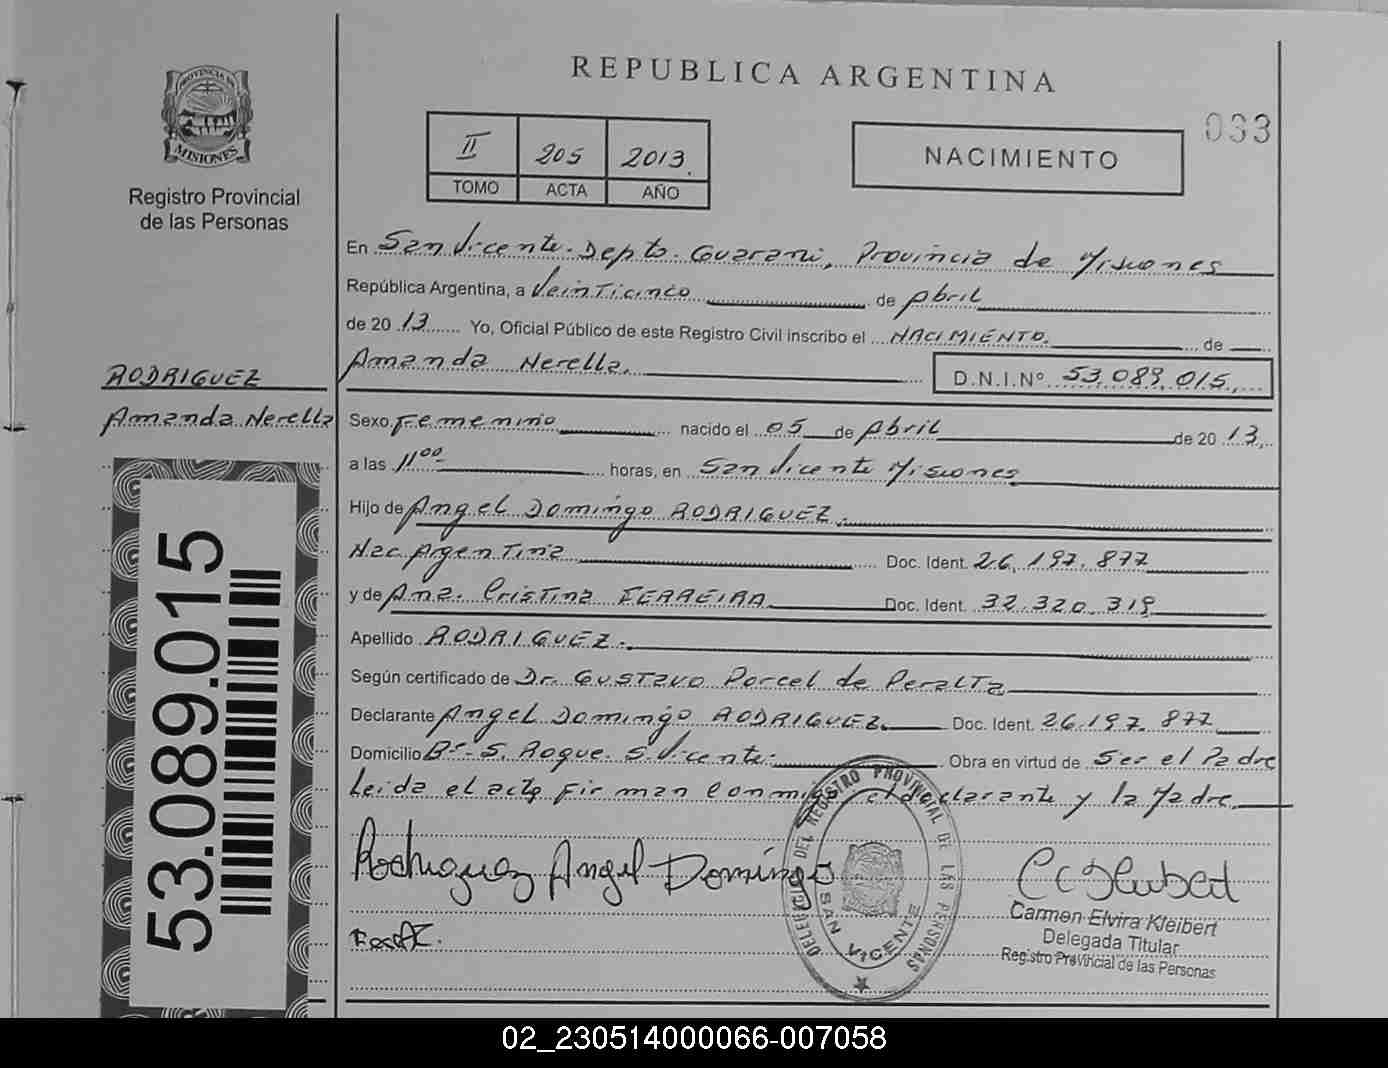 PROVINCIA DE
MISIONES
Registro Provincial
de las Personas
RODRIGUEZ
Amanda Nerella
53.089.015
REPUBLICA ARGENTINA
033
II 205 2013.
TOMO ACTA AÑO
NACIMIENTO
En San Vicente. Depto. Guarani, Provincia de Misiones
República Argentina, a Veinticinco de Abril
de 2013 Yo, Oficial Público de este Registro Civil inscribo el NACIMIENTO. de
Amanda Nerella. D.N.I.Nº 53.089.015.
Sexo Femenino nacido el 05 de Abril de 2013.
a las 11⁰⁰ horas, en San Vicente Misiones
Hijo de Angel Domingo RODRIGUEZ.
Nac Argentina Doc. Ident. 26.197.877
y de Ana. Cristina FERREIRA Doc. Ident. 32.320.319
Apellido RODRIGUEZ.
Según certificado de Dr. Gustavo Porcel de Peralta
Declarante Angel Domingo RODRIGUEZ. Doc. Ident. 26.197.877
Domicilio Bº S. Roque S. Vicente. Obra en virtud de Ser el Padre
Leida el acta Firman Conmigo el declarante y la Madre.
Rodriguez Angel Domingo
DELEGACION DEL REGISTRO PROVINCIAL DE LAS PERSONAS
SAN VICENTE
Carmen Elvira Kleibert
Delegada Titular
Registro Provincial de las Personas
02_230514000066-007058